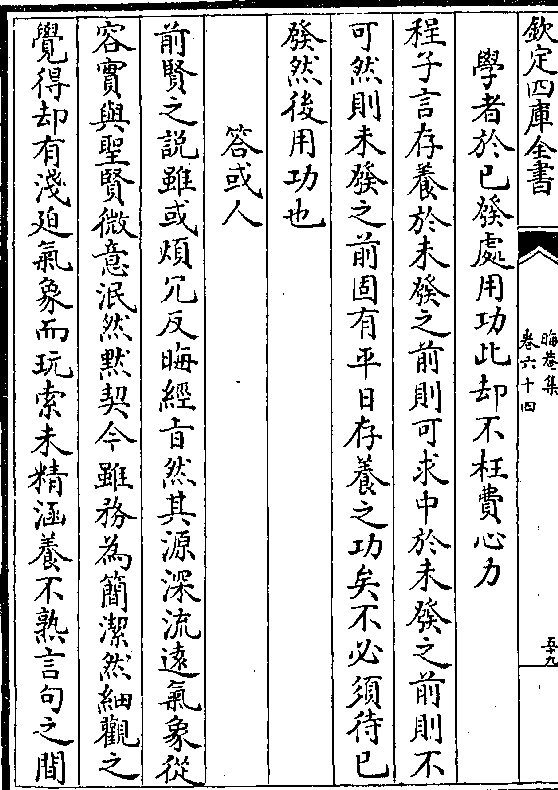 欽定四庫全書
晦菴集
卷六十四
五十九
學者於已發處用功此却不枉費心力
程子言存養於未發之前則可求中於未發之前則不
可然則未發之前固有平日存養之功矣不必須待已
發然後用功也
答或人
前賢之說雖或煩冗反晦經旨然其源深流遠氣象從
容實與聖賢微意泯然黙契今雖務為簡潔然細觀之
覺得却有淺廹氣象而玩索未精涵養不熟言句之間